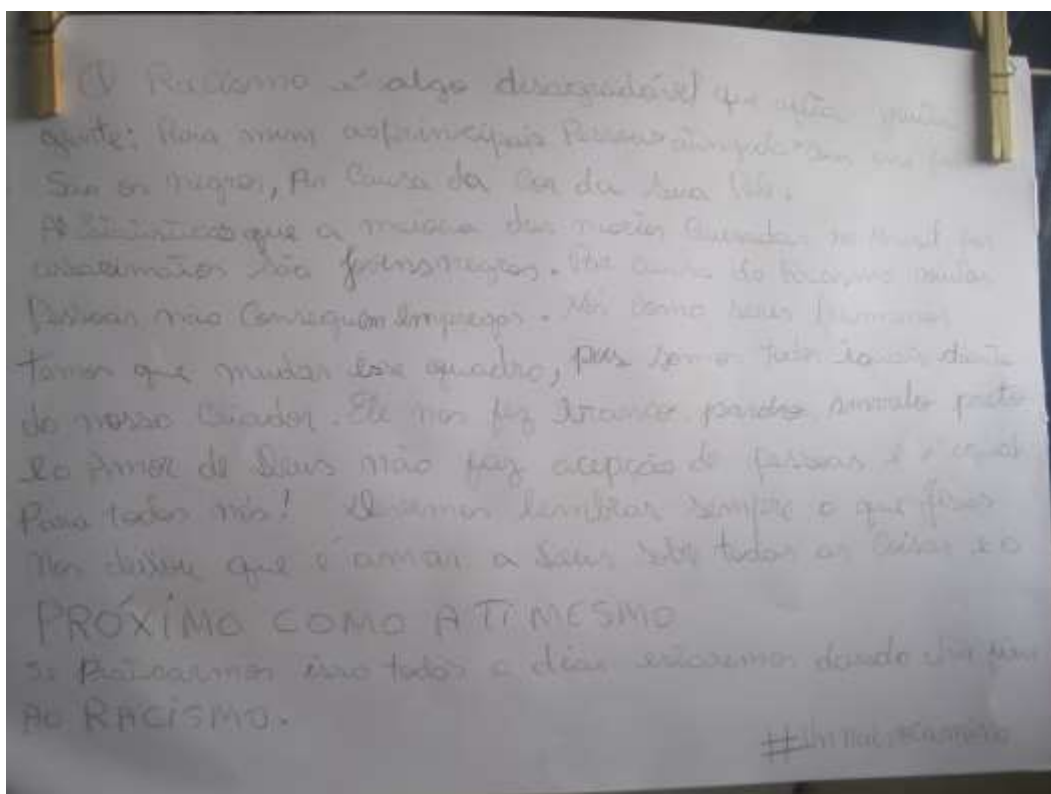 O Racismo é algo desagradável que afeta muita
gente; as principais Pessoas
São os negros, Por Causa da Cor da Sua Pele.
que a maioria das mortes Causadas no Brasil por
assassinatos são jovens negros. Por causa do Racismo muitas
Pessoas não Conseguem Empregos. Nós como seres humanos
temos que mudar esse quadro, pois somos todos iguais diante
do nosso Criador. Ele nos fez branco pardo preto
e o Amor de Deus não faz acepção de pessoas e é igual
Para todos nós! Devemos lembrar sempre o que Jesus
Nos deixou que é amar a Deus sobre todas as Coisas e o
PRÓXIMO COMO A TI MESMO
Se Praticarmos isso todos o dias estaremos dando um fim
AO RACISMO.